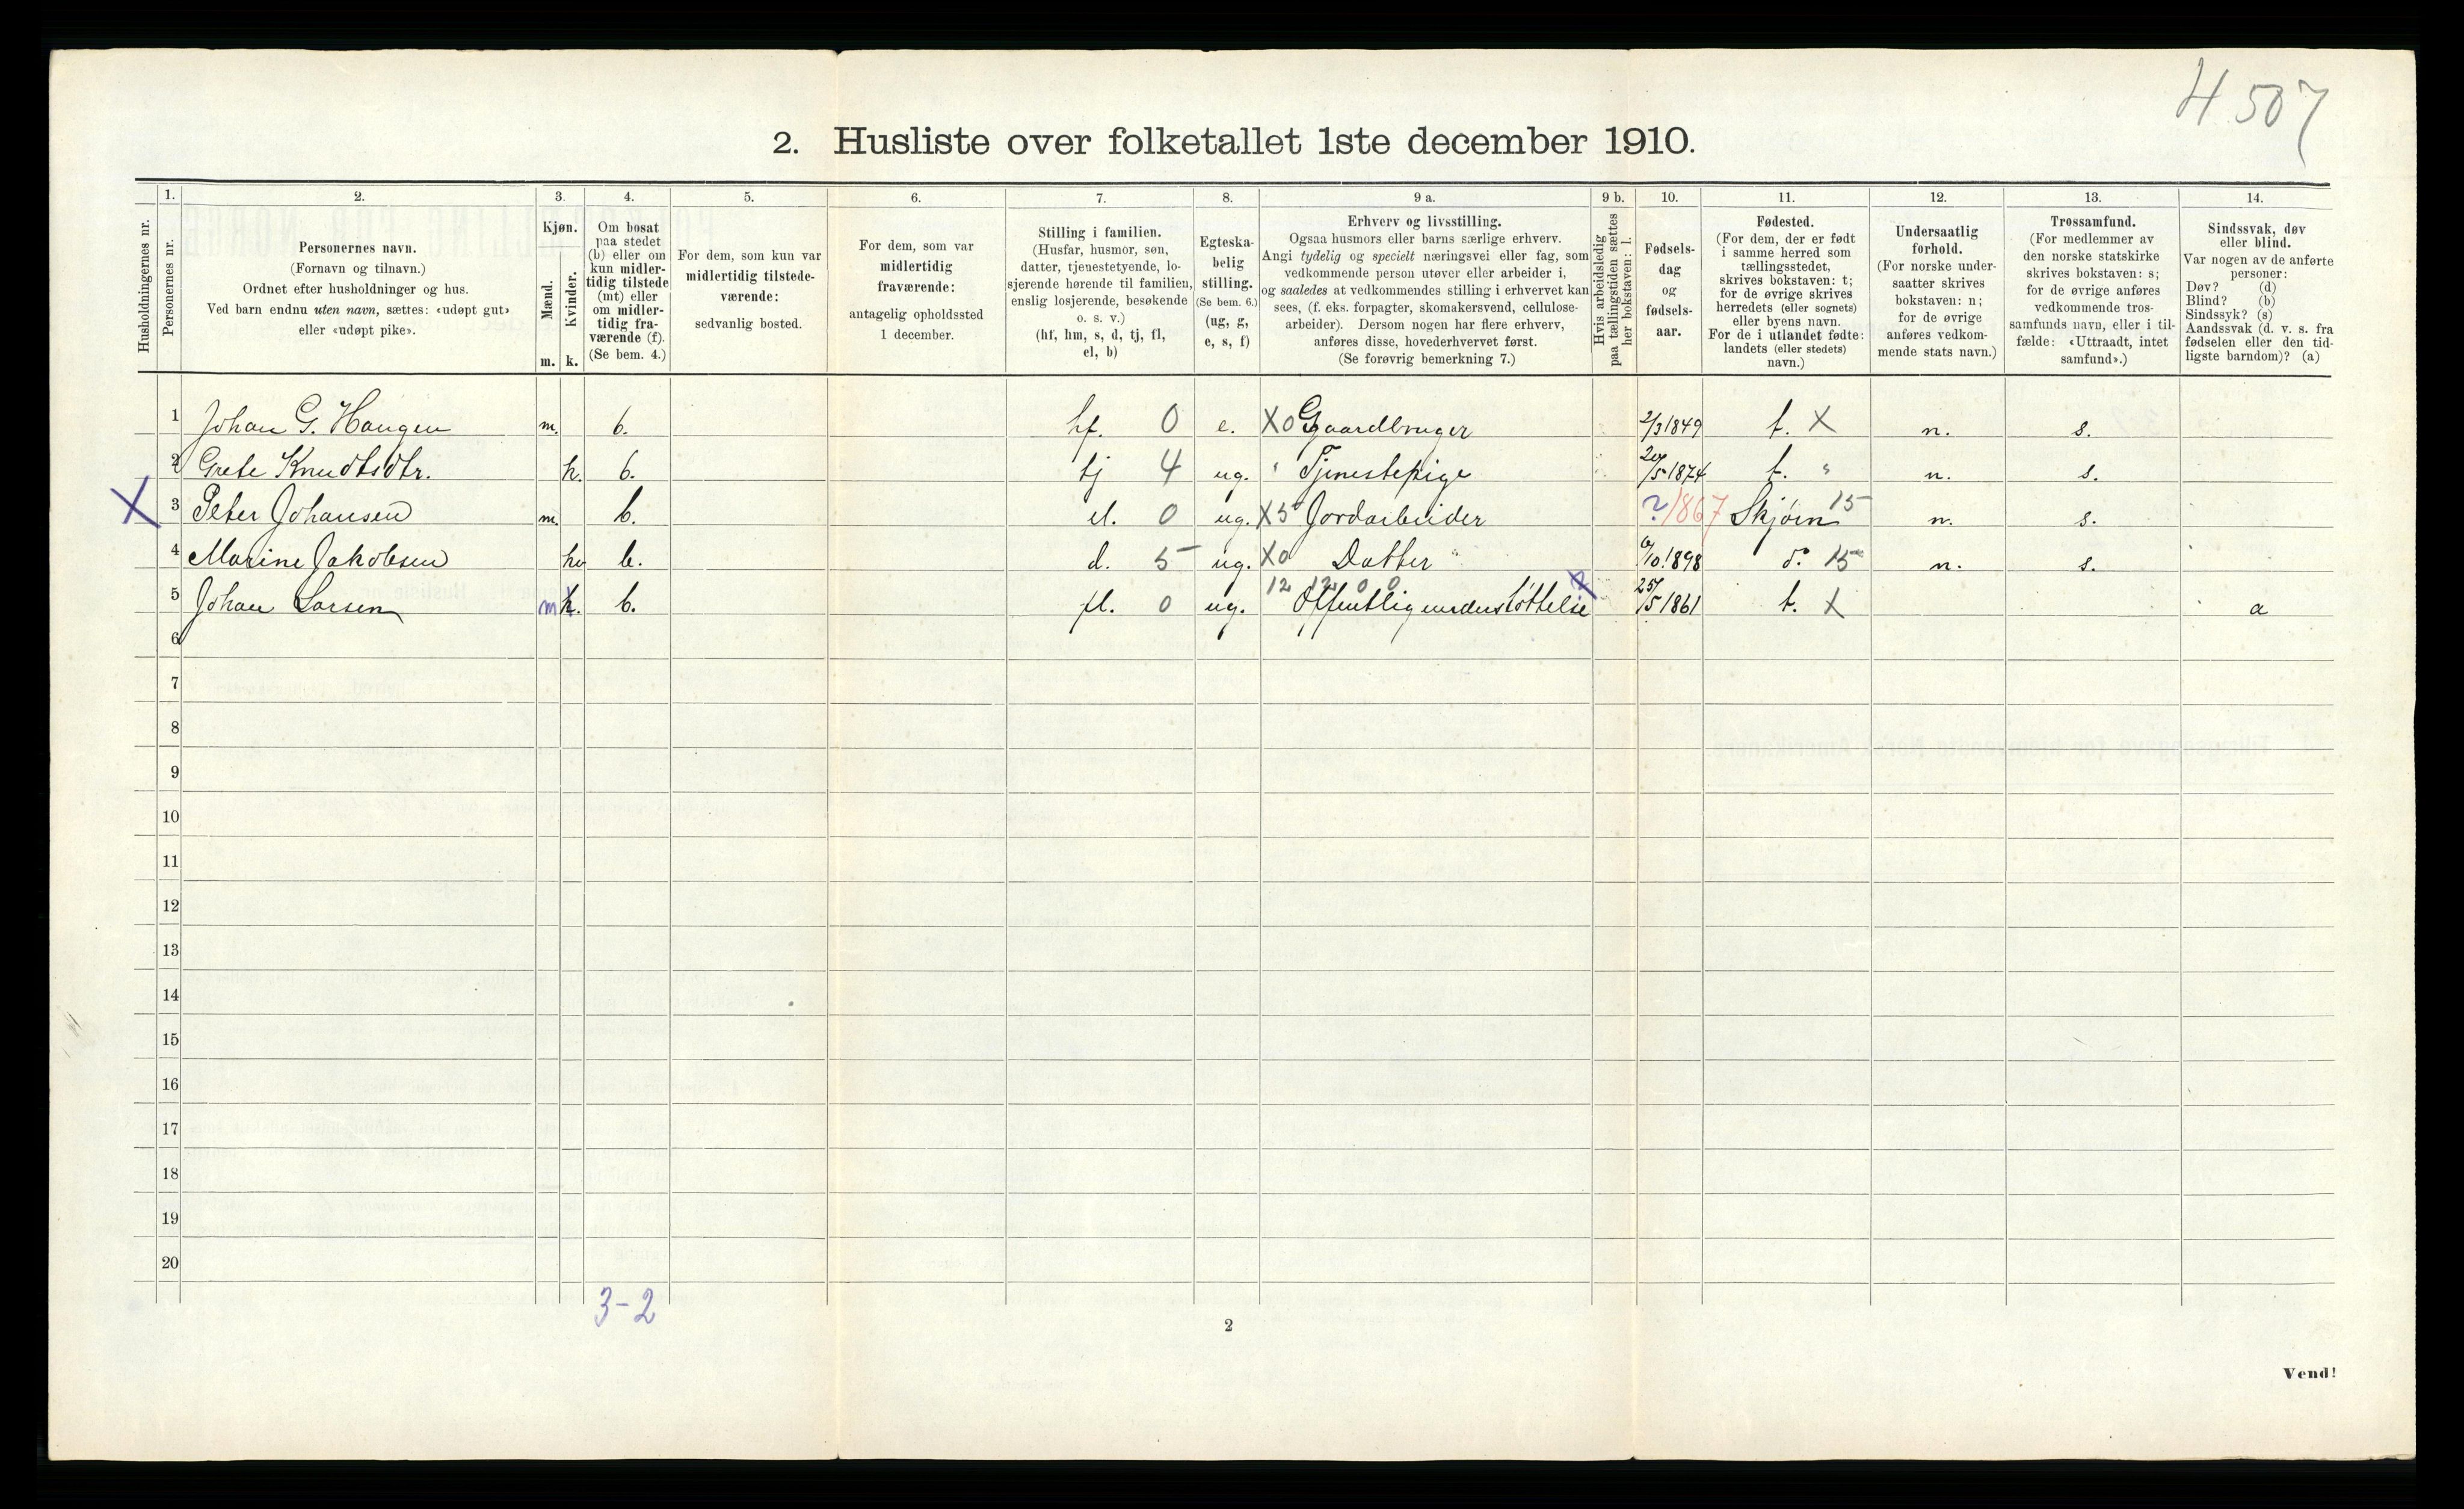 H. 507
2. Husliste over folketallet 1ste december 1910.
Husholdningernes nr.
1.
Personernes nr.
2.
Personernes navn.
(Fornavn og tilnavn.)
Ordnet efter husholdninger og hus.
Ved barn endnu uten navn, sættes: «udøpt gut»
eller «udøpt pike».
3.
Kjøn.
Mænd.
Kvinder.
m. k.
4.
Om bosat
paa stedet
(b) eller om
kun midler-
tidig tilstede
(mt) eller
om midler-
tidig fra-
værende (f).
(Se bem. 4.)
5.
For dem, som kun var
midlertidig tilstede-
værende:
sedvanlig bosted.
6.
For dem, som var
midlertidig
fraværende:
antagelig opholdssted
1 december.
7.
Stilling i familien.
(Husfar, husmor, søn,
datter, tjenestetyende, lo-
sjerende hørende til familien,
enslig losjerende, besøkende
o. s. v.)
(hf, hm, s, d, tj, fl,
el, b)
8.
Egteska-
belig
stilling.
(Se bem. 6.)
(ug, g,
e, s, f)
9 a.
Erhverv og livsstilling.
Ogsaa husmors eller barns særlige erhverv.
Angi tydelig og specielt næringsvei eller fag, som
vedkommende person utøver eller arbeider i,
og saaledes at vedkommendes stilling i erhvervet kan
sees, (f. eks. forpagter, skomakersvend, cellulose-
arbeider). Dersom nogen har flere erhverv,
anføres disse, hovederhvervet først.
(Se forøvrig bemerkning 7.)
9 b.
Hvis arbeidsledig
paa tællingstiden sættes
her bokstaven: l.
10.
Fødsels-
dag
og
fødsels-
aar.
11.
Fødested.
(For dem, der er født
i samme herred som
tællingsstedet,
skrives bokstaven: t;
for de øvrige skrives
herredets (eller sognets)
eller byens navn.
For de i utlandet fødte:
landets (eller stedets)
navn.)
12.
Undersaatlig
forhold.
(For norske under-
saatter skrives
bokstaven: n;
for de øvrige
anføres vedkom-
mende stats navn.)
13.
Trossamfund.
(For medlemmer av
den norske statskirke
skrives bokstaven: s;
for de øvrige anføres
vedkommende tros-
samfunds navn, eller i til-
fælde: «Uttraadt, intet
samfund».)
14.
Sindssvak, døv
eller blind.
Var nogen av de anførte
personer:
Døv? (d)
Blind? (b)
Sindssyk? (s)
Aandssvak (d. v. s. fra
fødselen eller den tid-
ligste barndom)? (a)
1 Johan G. Haugen m. b. hf. 0 e. X0 Gaardbruger 2/3 1849 t. X n. s.
2 Grete Knudtsdtr. k. b. tj 4 ug. " Tjenestepige 20/5 1874 t. " n. s.
X 3 Peter Johansen m. b. el. 0 ug. X5 Jordarbeider ?/1867 Skjørn 15 n. s.
4 Marine Jakobsen k b. d. 5 ug. X0 Datter " 6/10 1898 do 15 n. s.
5 Johan Larsen m k. b. fl. 0 ug. 12 12 0 0 Offentlig understøttelse 25/5 1861 t. X a
6
7
8
9
10
11
12
13
14
15
16
17
18
19
20
3-2
2
Vend!